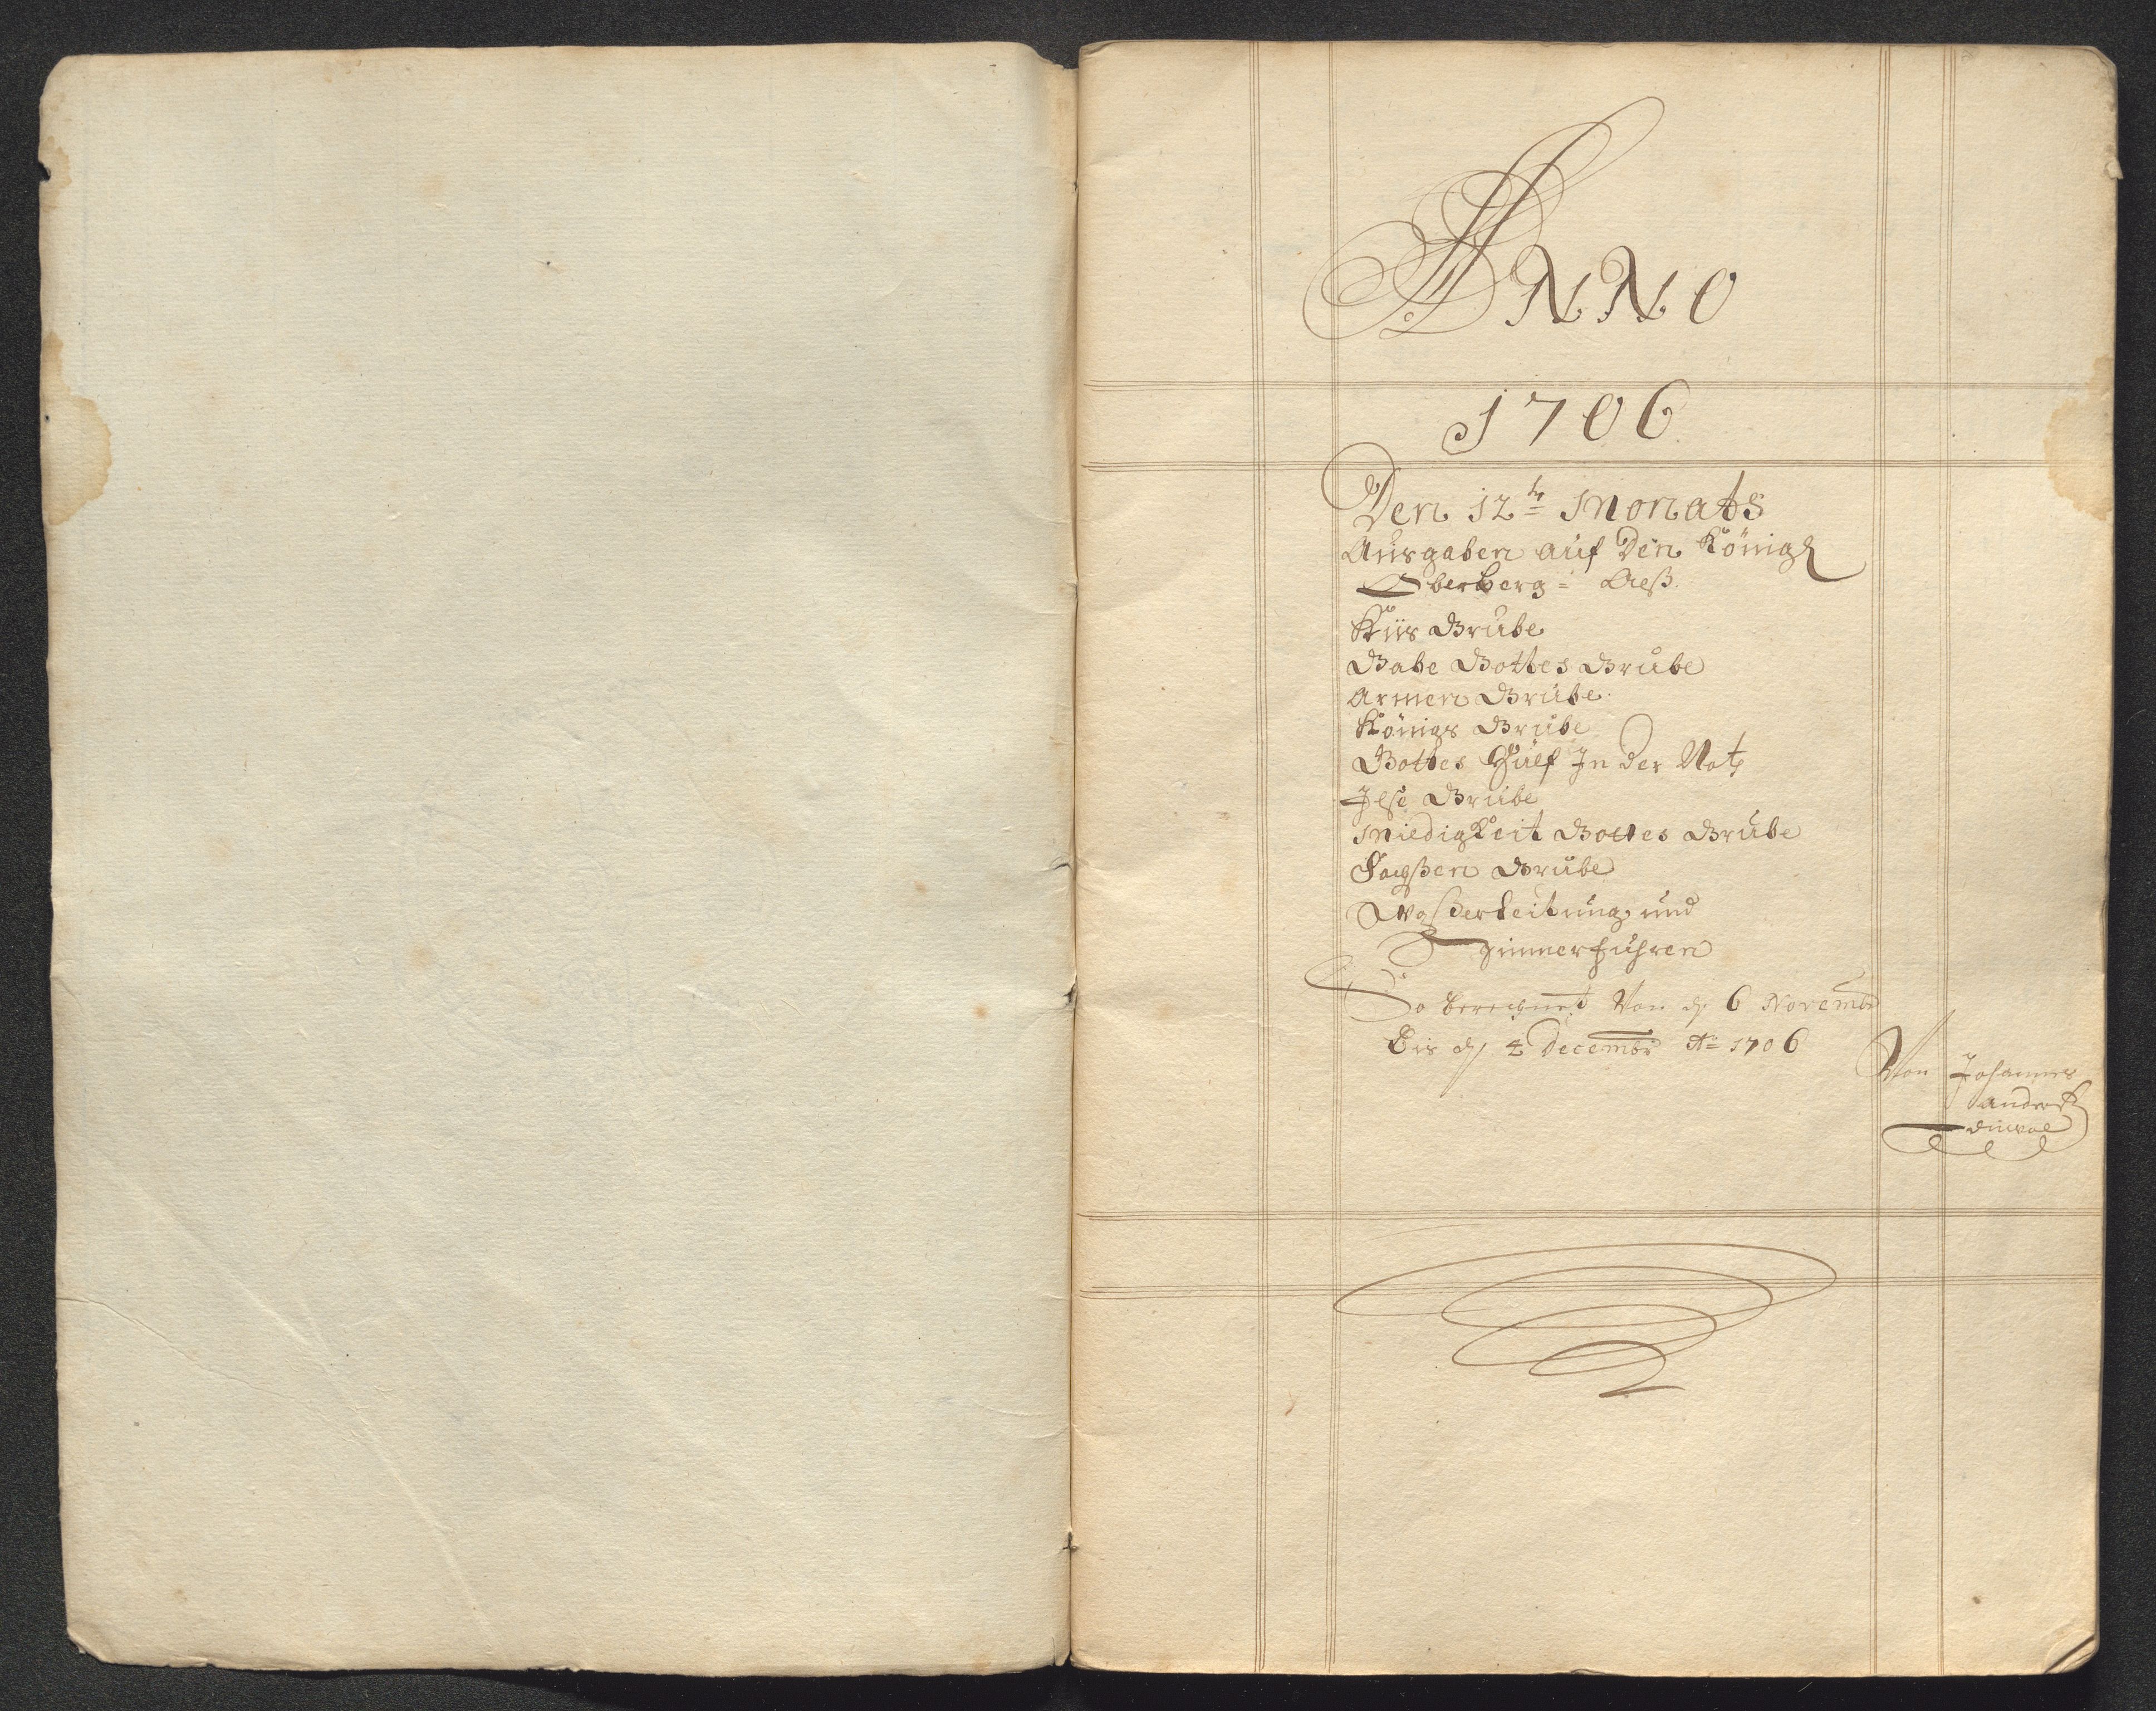 ANNO
1706
Den 12te Monats
Ausgaben auf Den Königl
Oberberg=
Grube
Gabe Gottes Grube
Armen Grube
Königs Grube
Gottes Hülf In der Not
Grube
Miedigkeit Gottes Grube
Sachßen Grube
Waßerleitung und
Zimmerfuhren
So berechnet Von dn 6 Novembr
Bis dn 4 Decembr Ao 1706
Von Johannes
Andreas